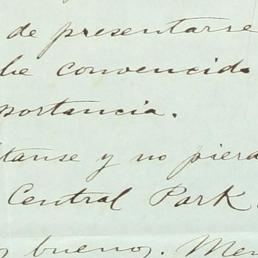 de presentarse
he convencido
portancia.
tanse y no pierda
Central Park
y buenos. Mer